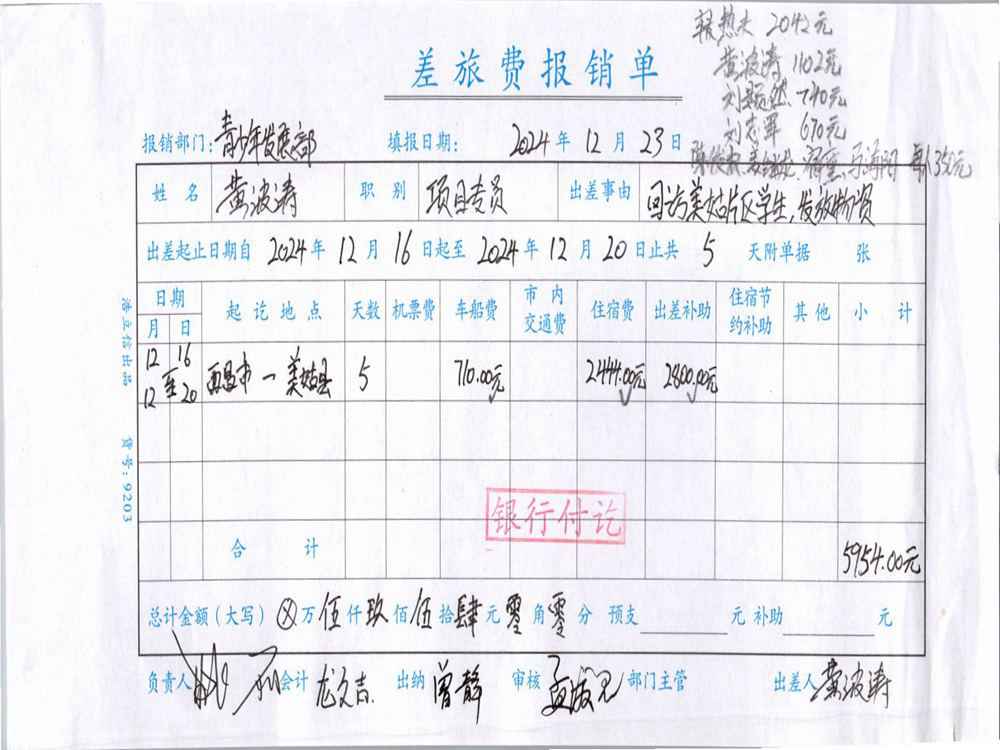 2042元
黄波涛 1102元
740元
刘志军 670元
350元
差旅费报销单
报销部门：青少年发展部 填报日期：2024年12月23日
姓名 黄波涛 职别 项目专员 出差事由 回访美姑片区学生，发放物资
出差起止日期自2024年12月16日起至2024年12月20日止共5天附单据 张
日期 起讫地点 天数 机票费 车船费 市内交通费 住宿费 出差补助 住宿节约补助 其他 小计
月 日
12 16 至 12 20 西昌市—美姑县 5 710.00元 2444.00元 2800.00元
银行付讫
合计 5954.00元
总计金额（大写）⊗万伍仟玖佰伍拾肆元零角零分 预支 元 补助 元
负责人 会计 龙文吉 出纳 曾静 审核 部门主管 出差人 黄波涛
浩立信出品 货号：9203